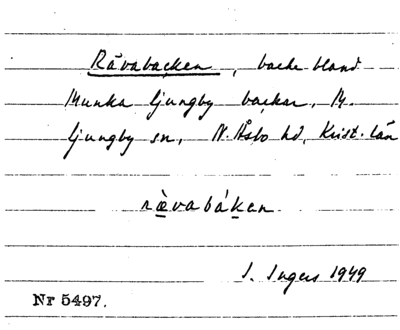 Rävabacken, backe bland
Munka ljungby backar, M.
ljungby sn, N. Åsbo hd, Krist. län
rævabákan.
I. Ingers 1949
Nr 5497.